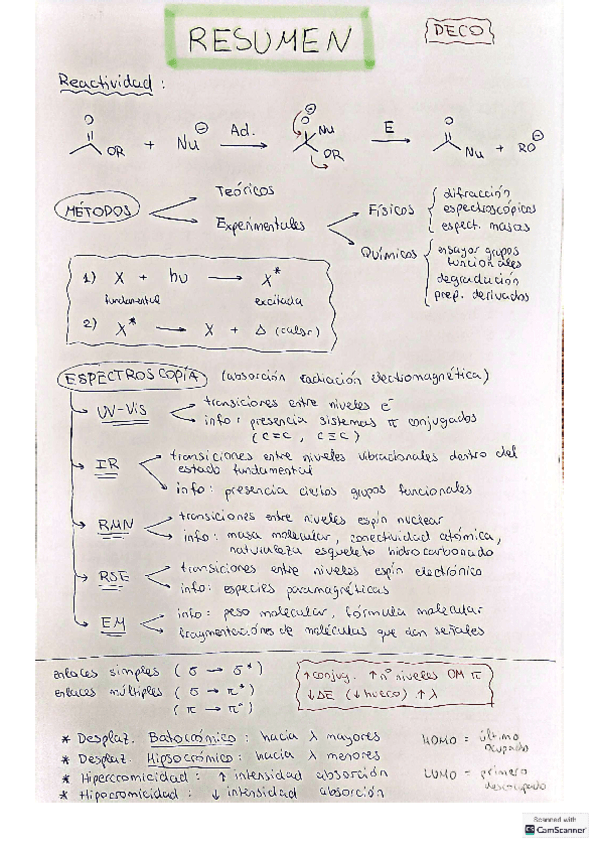 RESUMEN
DECO
Reactividad:
O OR + Nu⊖ Ad. → O⊖ Nu OR E → O Nu + RO⊖
MÉTODOS
Teóricos
Experimentales
Físicos
difracción
espectroscópicos
espect. masas
Químicos
ensayar grupos
funcionales
degradación
prep. derivados
1) X + hυ → X*
fundamental excitada
2) X* → X + Δ (calor)
ESPECTROSCOPÍA (absorción radiación electromagnética)
UV-Vis
transiciones entre niveles e-
info: presencia sistemas π conjugados
(C=C, C≡C)
IR
transiciones entre niveles vibracionales dentro del
estado fundamental
info: presencia ciertos grupos funcionales
RMN
transiciones entre niveles espín nuclear
info: masa molecular, conectividad atómica,
naturaleza esqueleto hidrocarbonado
RSE
transiciones entre niveles espín electrónico
info: especies paramagnéticas
EM
info: peso molecular, fórmula molecular
fragmentaciones de moléculas que dan señales
enlaces simples (σ → σ*)
enlaces múltiples (σ → π*)
(π → π*)
↑conjug. ↑nº niveles OM π
↓ΔE (↓hueco) ↑λ
* Desplaz. Batocrómico: hacia λ mayores
* Desplaz. Hipsocrómico: hacia λ menores
* Hipercromicidad: ↑ intensidad absorción
* Hipocromicidad: ↓ intensidad absorción
HOMO = último
ocupado
LUMO = primero
desocupado
Scanned with
CS CamScanner